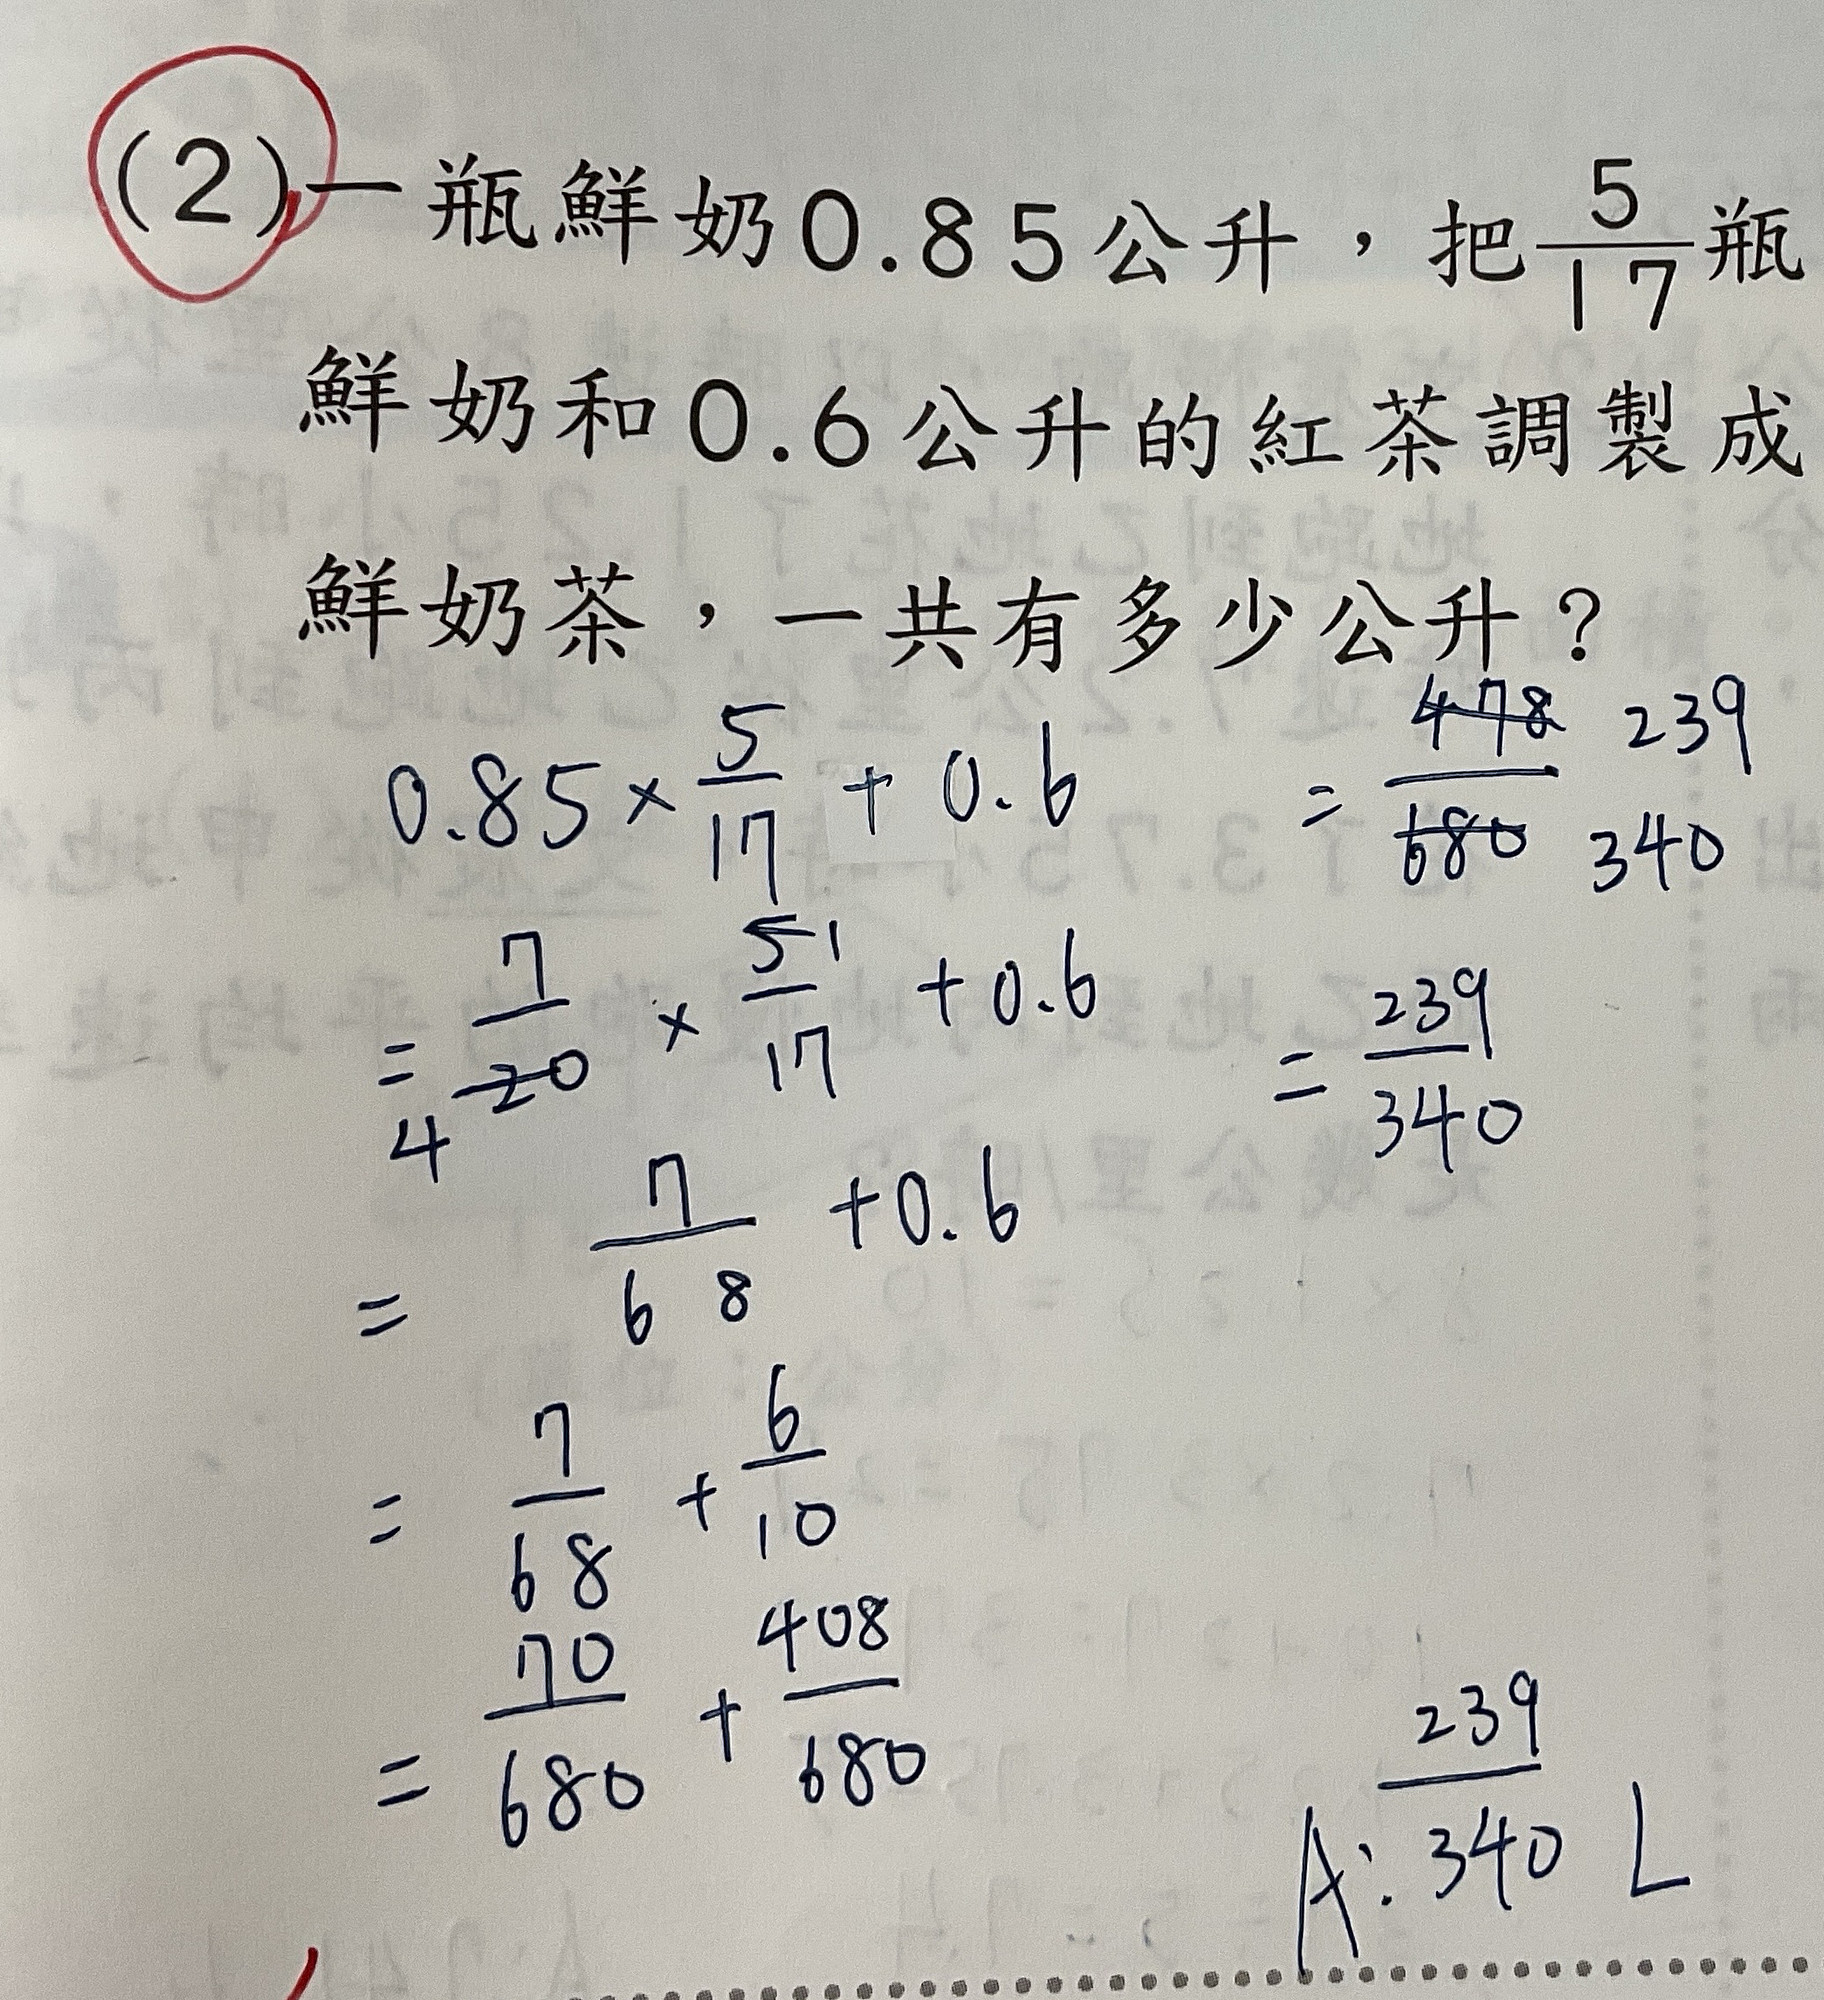 (2)一瓶鮮奶0.85公升，把5/17瓶
鮮奶和0.6公升的紅茶調製成
鮮奶茶，一共有多少公升？
0.85×5/17+0.6
=7/20×5/17+0.6
4 1
=7/68+0.6
=7/68+6/10
=70/680+408/680
=478/680 239/340
=239/340
A:239/340 L